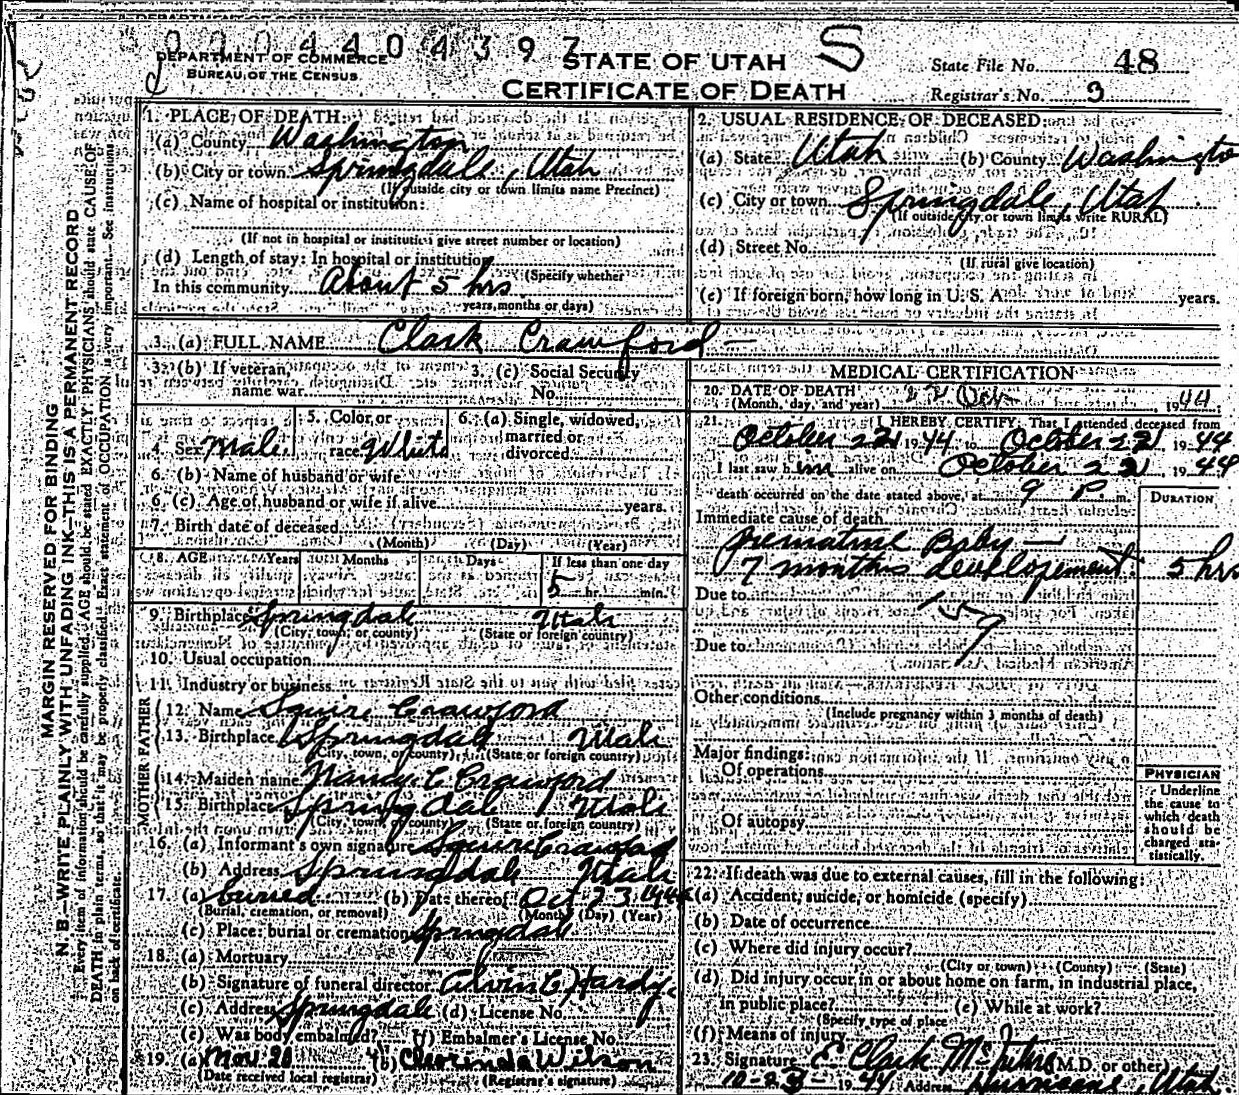 0 0 0 4 4 0 4 3 9 7
DEPARTMENT OF COMMERCE
BUREAU OF THE CENSUS
STATE OF UTAH
CERTIFICATE OF DEATH
S
State File No. 48
Registrar's No. 3
MARGIN RESERVED FOR BINDING
N. B.—WRITE PLAINLY WITH UNFADING INK—THIS IS A PERMANENT RECORD
Every item of information should be carefully supplied. AGE should be stated EXACTLY. PHYSICIANS should state CAUSE OF
DEATH in plain terms, so that it may be properly classified. Exact statement of OCCUPATION is very important. See instructions
on back of certificate.
1. PLACE OF DEATH:
(a) County Washington
(b) City or town Springdale, Utah
(If outside city or town limits name Precinct)
(c) Name of hospital or institution:
(If not in hospital or institution give street number or location)
(d) Length of stay: In hospital or institution
(Specify whether
In this community About 5 hrs
years, months or days)
2. USUAL RESIDENCE OF DECEASED:
(a) State Utah (b) County Washington
(c) City or town Springdale, Utah
(If outside city or town limits write RURAL)
(d) Street No.
(If rural give location)
(e) If foreign born, how long in U. S. A. years.
3. (a) FULL NAME Clark Crawford
3. (b) If veteran, name war
3. (c) Social Security No.
4. Sex Male
5. Color or race White
6. (a) Single, widowed, married or divorced
6. (b) Name of husband or wife
6. (c) Age of husband or wife if alive years.
7. Birth date of deceased
(Month) (Day) (Year)
8. AGE Years Months Days If less than one day
5 hr. min.
9. Birthplace Springdale Utah
(City, town, or county) (State or foreign country)
10. Usual occupation
11. Industry or business
FATHER
12. Name Squire Crawford
13. Birthplace Springdale Utah
(City, town, or county) (State or foreign country)
MOTHER
14. Maiden name Nancy C Crawford
15. Birthplace Springdale Utah
(City, town or county) (State or foreign country)
16. (a) Informant's own signature Squire Crawford
(b) Address Springdale Utah
17. (a) buried (b) Date thereof Oct 23 1944
(Burial, cremation, or removal) (Month) (Day) (Year)
(c) Place: burial or cremation Springdale
18. (a) Mortuary
(b) Signature of funeral director Alvin C Hardy
(c) Address Springdale (d) License No.
(e) Was body embalmed? (f) Embalmer's License No.
19. (a) Nov. 20 (b) Clorinda Wilson
(Date received local registrar) (Registrar's signature)
MEDICAL CERTIFICATION
20. DATE OF DEATH 22 Oct 1944
(Month, day, and year)
21. I HEREBY CERTIFY That I attended deceased from
October 22 1944 to October 22 1944
I last saw him alive on October 22 1944
death occurred on the date stated above, at 9 P. m.
DURATION
Immediate cause of death
Premature Baby —
7 months development 5 hrs
Due to
159
Due to
Other conditions
(Include pregnancy within 3 months of death)
Major findings:
Of operations
Of autopsy
PHYSICIAN
Underline
the cause to
which death
should be
charged sta-
tistically.
22. If death was due to external causes, fill in the following:
(a) Accident, suicide, or homicide (specify)
(b) Date of occurrence
(c) Where did injury occur?
(City or town) (County) (State)
(d) Did injury occur in or about home on farm, in industrial place,
in public place? (e) While at work?
(Specify type of place
(f) Means of injury
23. Signature E Clark McIntire (M.D. or other)
10-23- 1944 Address Hurricane, Utah